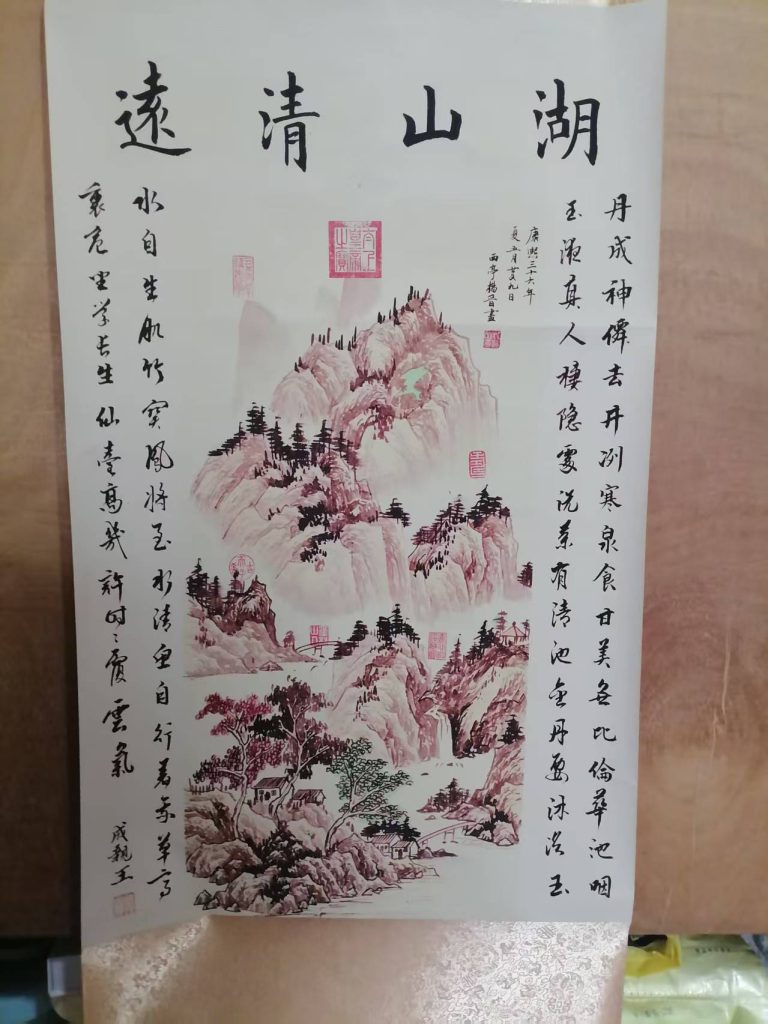 湖山清遠
丹成神僊去井冽寒泉食甘美無比倫華池咽
玉液真人棲隱處洗藥有清池金丹要沐浴玉
水自生肌竹實鳳將至水清魚自行著象草亭
裏危坐學長生仙臺高幾許時〻覆雲氣
成親王
康熙三十六年
夏五月廿九日
西亭楊晉畫